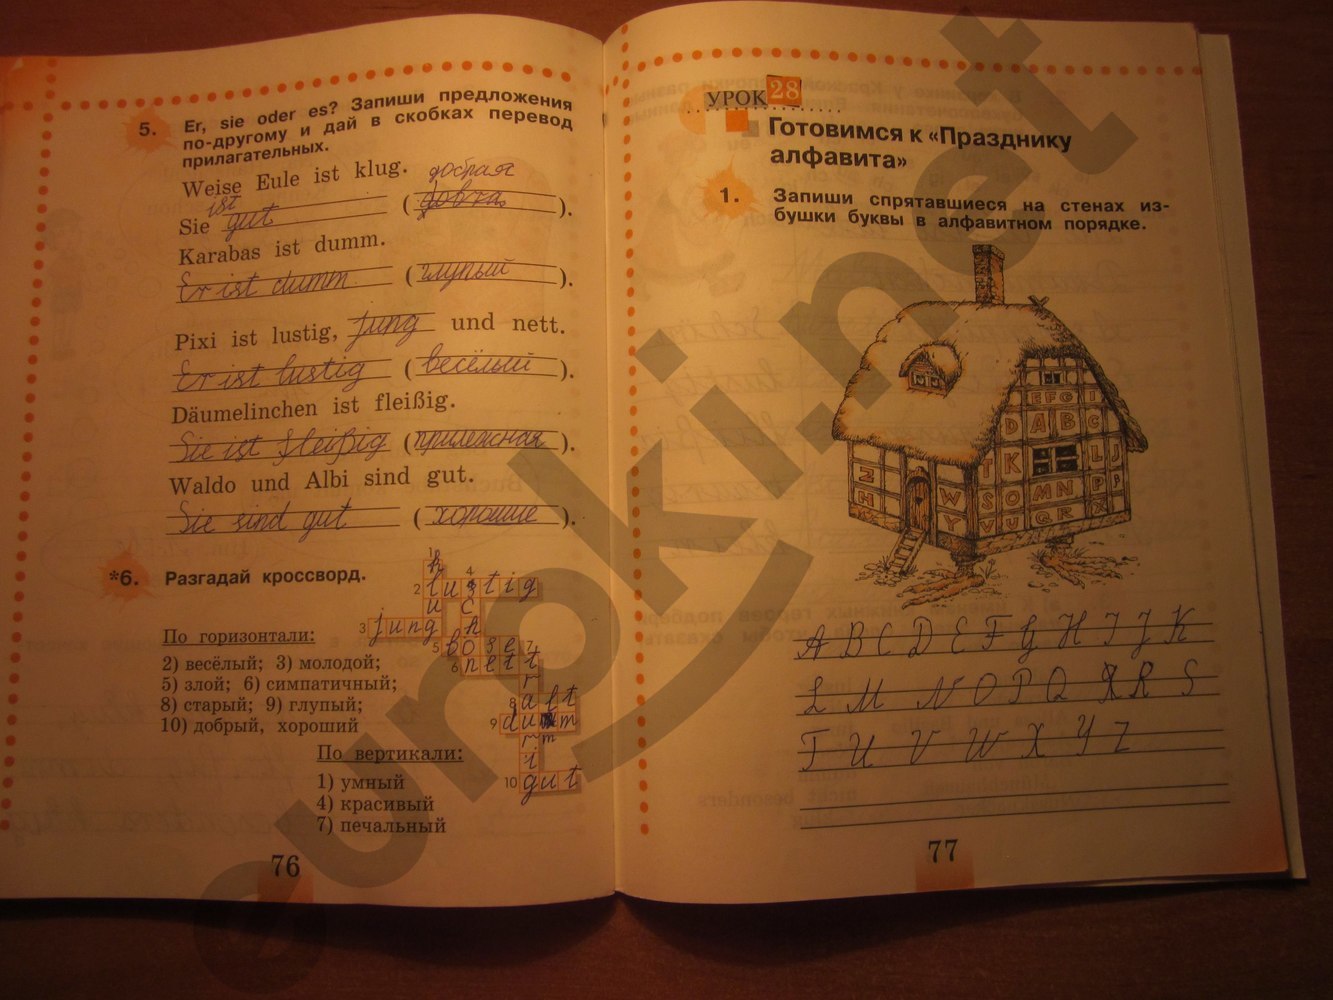 5. Er, sie oder es? Запиши предложения
по-другому и дай в скобках перевод
прилагательных.
Weise Eule ist klug. добрая
ist
Sie gut ( ).
Karabas ist dumm.
Er ist dumm (глупый).
Pixi ist lustig, jung und nett.
Er ist lustig (весёлый).
Däumelinchen ist fleißig.
Sie ist fleißig (прилежная).
Waldo und Albi sind gut.
Sie sind gut (хорошие).
*6. Разгадай кроссворд.
1 k
2 lustig 4
u c
3 jung h
5 böse 7
6 nett
r
8 alt
9 dumm
r m
i
10 gut
По горизонтали:
2) весёлый; 3) молодой;
5) злой; 6) симпатичный;
8) старый; 9) глупый;
10) добрый, хороший
По вертикали:
1) умный
4) красивый
7) печальный
76
УРОК 28
Готовимся к «Празднику
алфавита»
1. Запиши спрятавшиеся на стенах из-
бушки буквы в алфавитном порядке.
E F G I
D A B C
T K L J
Z H W S O M N P
Y V U Q R X
A B C D E F G H I J K
L M N O P Q R S
T U V W X Y Z
77
euroki.net